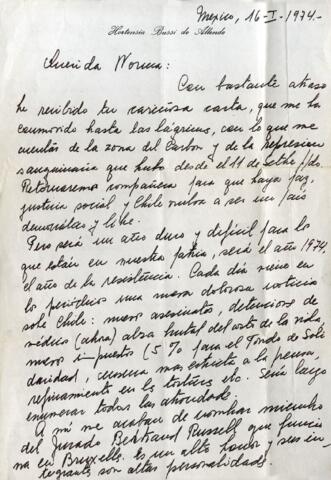 Mexico, 16-I-1974.-
Hortensia Bussi de Allende
Querida Norma:
Con bastante atraso
he recibido tu cariñosa carta, que me ha
conmovido hasta las lágrimas, con lo que me
cuentas de la zona del Carbon y de la represion
sanguinaria que hubo desde el 11 de Setbre pdo.
Retornaremos compañera para que haya paz,
justicia social y Chile vuelva a ser un pais
democratas y libre.
Pero será un año duro y dificil para los
que están en nuestra patria, será el año 1974,
el año de la resistencia. Cada dia viene en
los periódicos una nueva dolorosa noticia
sobre Chile: nuevos asesinatos, detenciones de
médicos (ahora) alza brutal del costo de la vida
nuevos impuestos (5% para el Fondo de Soli
daridad, censura mas estricta a la prensa,
refinamiento en las torturas etc. Sería largo
enumerar todas las atrocidades.
A mi me acaban de nombrar miembro
del Jurado Bertrand Russell que funcio
na en Bruxelles. Es un alto honor y sus in-
tegrantes son altas personalidades.